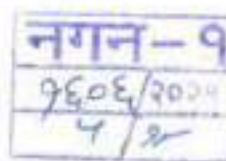 नगन-१
१६०६/२०२१
५ /